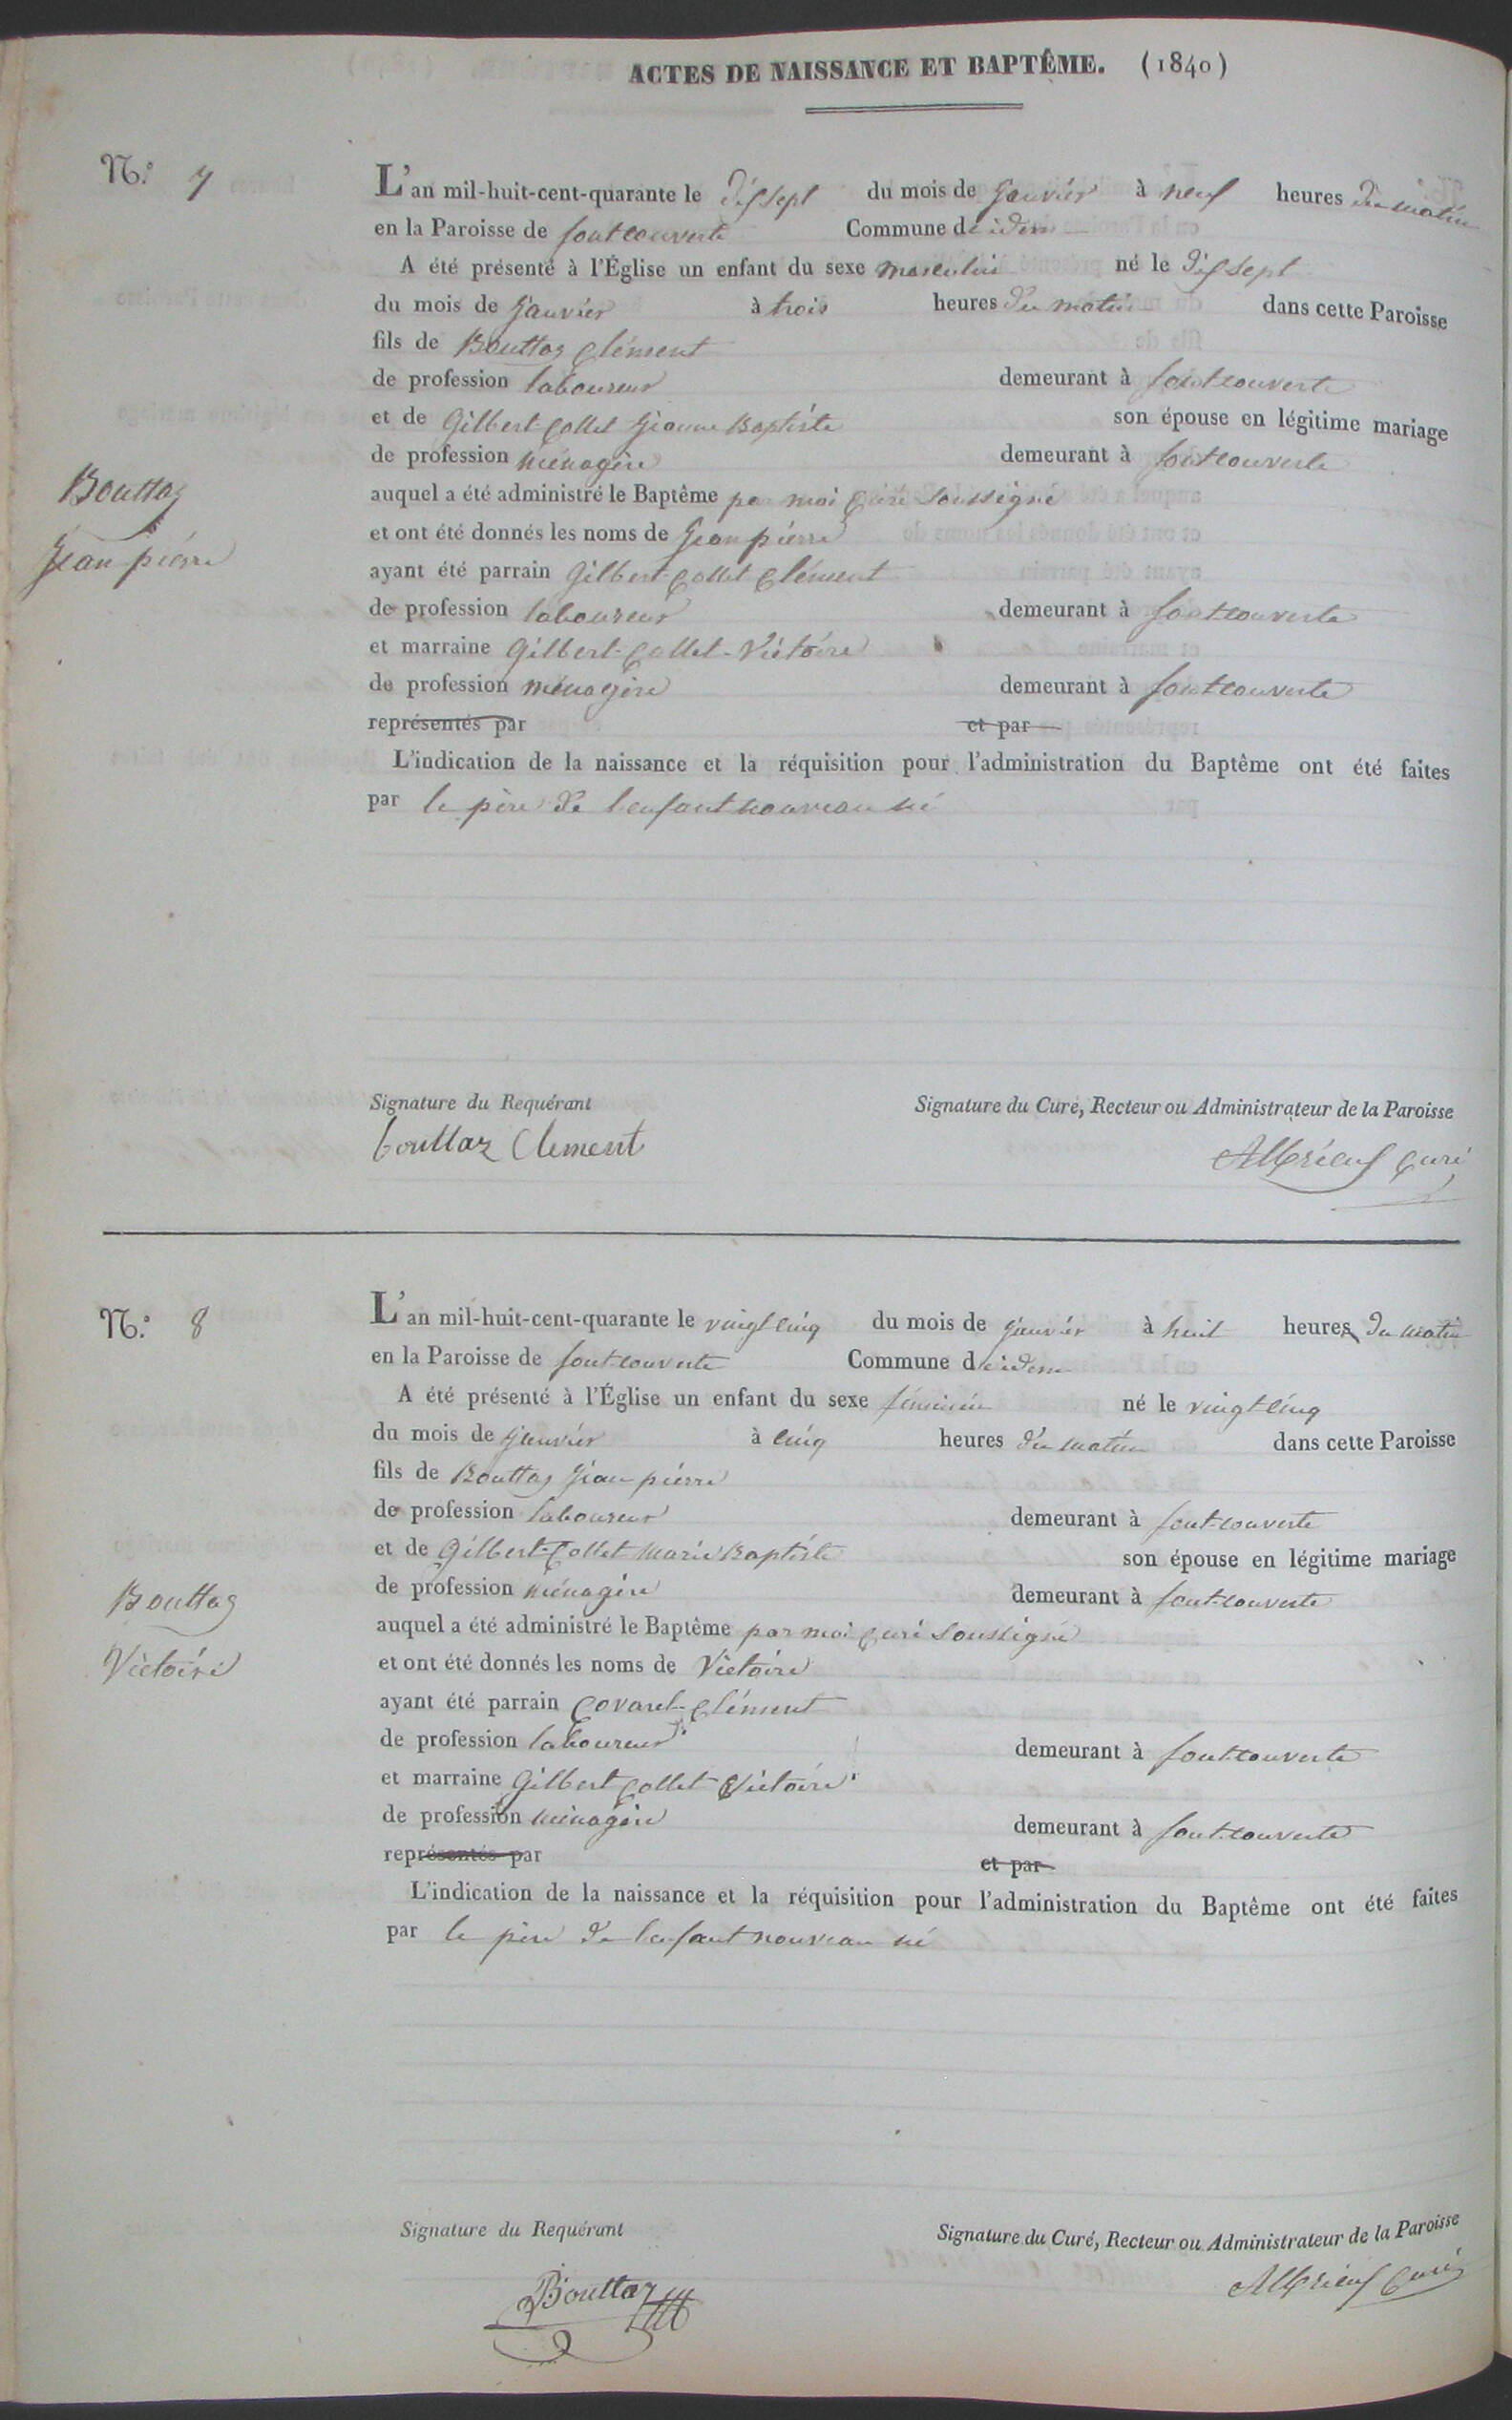 ACTES DE NAISSANCE ET BAPTÊME. (1840)
N.° 7
L'an mil-huit-cent-quarante le dissept du mois de janvier à neuf heures du matin
en la Paroisse de fontcouverte Commune de idem
A été présenté à l'Église un enfant du sexe masculin né le dissept
du mois de janvier à trois heures du matin dans cette Paroisse
fils de Bouttaz Clément
de profession laboureur demeurant à fontcouverte
et de Gilbert-Collet Jeanne Baptiste son épouse en légitime mariage
de profession ménagère demeurant à fontcouverte
Bouttaz
Jean pierre
auquel a été administré le Baptême par moi Curé soussigné
et ont été donnés les noms de Jean pierre
ayant été parrain Gilbert-Collet Clément
de profession laboureur demeurant à fontcouverte
et marraine Gilbert-Collet-Victoire
de profession ménagère demeurant à fontcouverte
représentés par et par
L'indication de la naissance et la réquisition pour l'administration du Baptême ont été faites
par le père de l'enfant nouveau né
Signature du Requérant Signature du Curé, Recteur ou Administrateur de la Paroisse
bouttaz Clement
Albrieux Curé
N.° 8
L'an mil-huit-cent-quarante le vingt cinq du mois de janvier à huit heures du matin
en la Paroisse de font-couverte Commune de idem
A été présenté à l'Église un enfant du sexe féminin né le vingt cinq
du mois de janvier à cinq heures du matin dans cette Paroisse
fils de Bouttaz Jean pierre
de profession laboureur demeurant à font-couverte
et de Gilbert-Collet Marie Baptiste son épouse en légitime mariage
de profession ménagère demeurant à font-couverte
Bouttaz
Victoire
auquel a été administré le Baptême par moi Curé soussigné
et ont été donnés les noms de Victoire
ayant été parrain Covarel-Clément
de profession laboureur demeurant à font-couverte
et marraine Gilbert Collet Victoire
de profession ménagère demeurant à font-couverte
représentés par et par
L'indication de la naissance et la réquisition pour l'administration du Baptême ont été faites
par le père de l'enfant nouveau né
Signature du Requérant Signature du Curé, Recteur ou Administrateur de la Paroisse
Bouttaz
Albrieux Curé